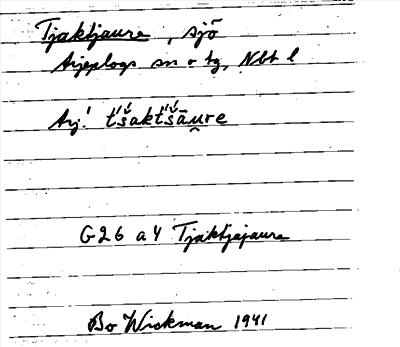 Tjaktjaure, sjö
Arjeplogs sn o tg, Nbt l
Arj. t́š́akt́š́āu̯re
G26 a4 Tjaktjajaure
Bo Wickman 1941